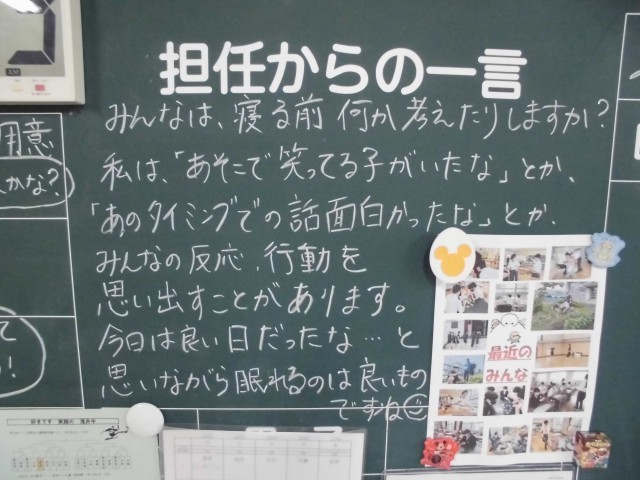 担任からの一言
みんなは、寝る前 何か考えたりしますか?
私は、「あそこで笑ってる子がいたな」とか、
「あのタイミングでの話面白かったな」とか、
みんなの反応、行動を
思い出すことがあります。
今日は良い日だったな…と
思いながら眠れるのは良いもの
ですね
用意
かな?
最近の
みんな